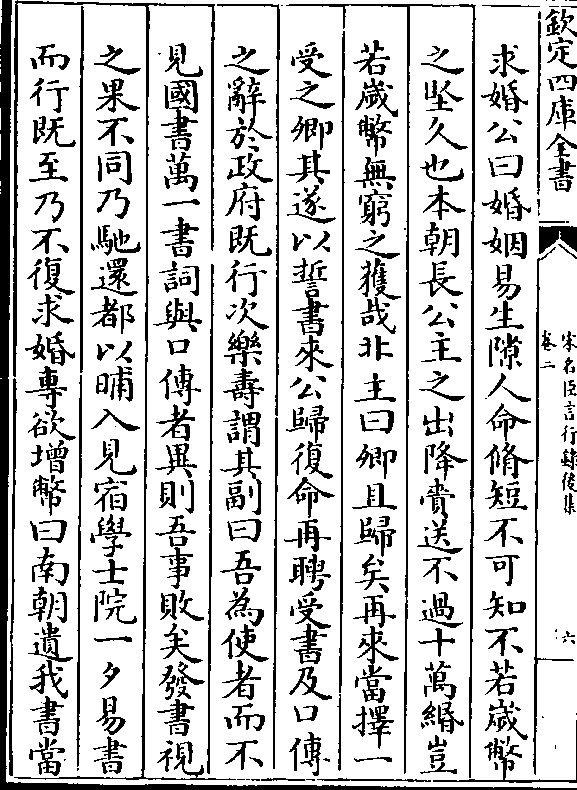 欽定四庫全書
宋名臣言行錄後集
卷二
六
求婚公曰婚姻易生隙人命脩短不可知不若歲幣
之堅久也本朝長公主之出降賫送不過十萬緡豈
若歲幣無窮之獲哉北主曰卿且歸矣再來當擇一
受之卿其遂以誓書來公歸復命再聘受書及口傳
之辭於政府既行次樂壽謂其副曰吾為使者而不
見國書萬一書詞與口傳者異則吾事敗矣發書視
之果不同乃馳還都以晡入見宿學士院一夕易書
而行既至乃不復求婚專欲增幣曰南朝遺我書當